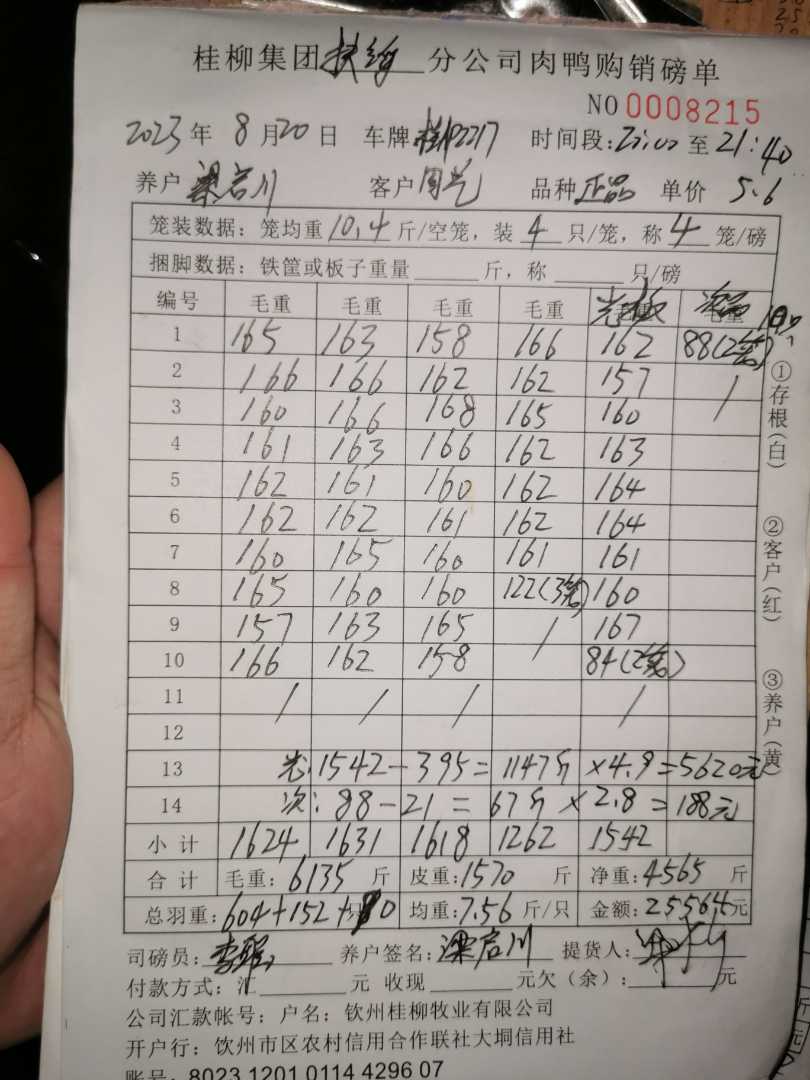 桂柳集团扶绥分公司肉鸭购销磅单
NO 0008215
2023年 8月20日 车牌 时间段:20:00至21:40
养户 梁启川 客户 品种 正品 单价 5.6
笼装数据：笼均重10.4斤/空笼，装4只/笼，称4笼/磅
捆脚数据：铁筐或板子重量 斤，称 只/磅
编号 毛重 毛重 毛重 毛重
1 165 163 158 166 162 88(2笼)
2 166 166 162 162 157 /
3 160 166 168 165 160
4 161 163 166 162 163
5 162 161 160 162 164
6 162 162 161 162 164
7 160 165 160 161 161
8 165 160 160 122(3笼) 160
9 157 163 165 / 167
10 166 162 158 84(2笼)
11 / / / /
12
13 光:1542-395=1147斤×4.9=5620元
14 次:88-21=67斤×2.8=188元
小计 1624 1631 1618 1262 1542
合计 毛重:6135斤 皮重:1570斤 净重:4565斤
总羽重:604+152+ 均重:7.56斤/只 金额:25564元
司磅员: 养户签名:梁启川 提货人:
付款方式：汇 元 收现 元欠（余）: 元
公司汇款帐号：户名：钦州桂柳牧业有限公司
开户行：钦州市区农村信用合作联社大垌信用社
账号：8023 1201 0114 4296 07
①存根(白)
②客户(红)
③养户(黄)